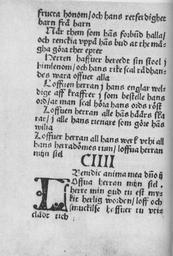 fructa honom/och hans retferdighet
barn frå barn
När them som hans forbūd halla/
och tenckia uppå hans bud at the må-
gha göra ther epter
Herren haffuer beredt sin stool j
himmelen/och hans rike skal rådha
offuer alla
Loffuen herran j hans englar
dige aff krafft j som
ord/at man scal höra hans ords röst
Loffuen herran alle hans häärs
rar/j alle hans tienare som göre hans
wilia
Loffuen herran all hans werk vthi all
hans herradömes rum/loffua herran
min siel
CIIII
Benedic anima mea dno
Loffua herran min siel/
herre min gud tu est
kit herlig worden/loff och